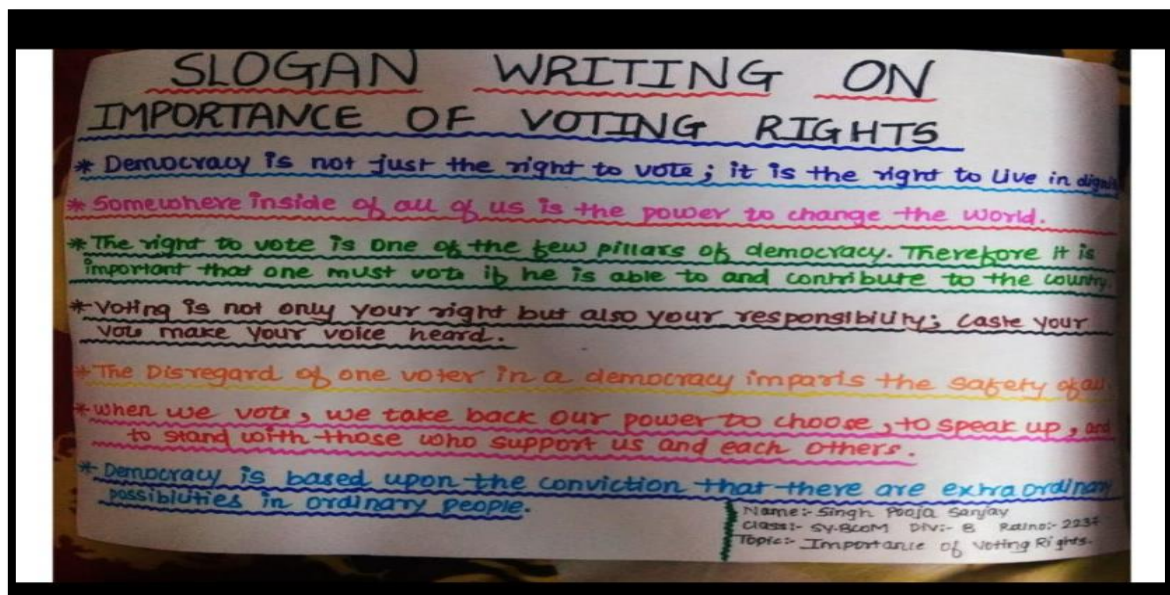 SLOGAN WRITING ON
IMPORTANCE OF VOTING RIGHTS
* Democracy is not just the right to vote; it is the right to Live in
* Somewhere inside of all of us is the power to change the world.
* The right to vote is one of the few pillars of democracy. Therefore it is
important that one must vote if he is able to and contribute to the country.
* Voting is not only your right but also your responsibility; Caste your
vote make your voice heard.
* The Disregard of one voter in a democracy imparis the safety of all.
* when we vote, we take back our power to choose, to speak up, and
to stand with those who support us and each others.
* Democracy is based upon the conviction that there are extra ordinary
possiblities in ordinary people.
Name:- Singh Pooja Sanjay
Class:- SY.BCOM DIV:- B Rollno:-
Topic:- Importance of Voting Rights.